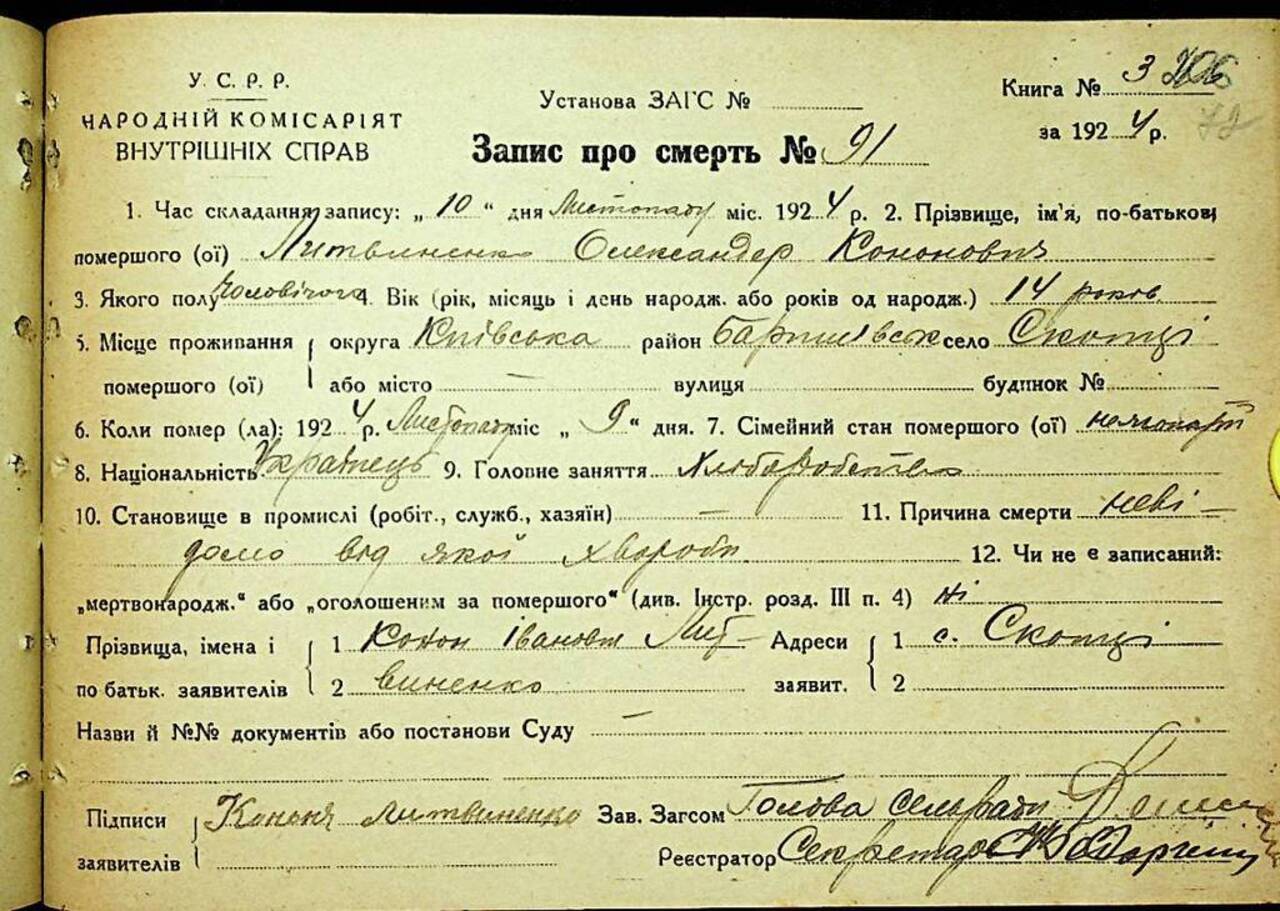 У. С. Р. Р.
НАРОДНІЙ КОМІСАРІЯТ
ВНУТРІШНІХ СПРАВ
Установа ЗАГС №
Книга № 3 206
72
за 1924 р.
Запис про смерть № 91
1. Час складання запису: „ 10 “ дня Листопаду міс. 1924 р. 2. Прізвище, ім'я, по-батькові
помершого (ої) Литвиненко Олександер Кононович
3. Якого полу Чоловічого 4. Вік (рік, місяць і день народж. або років од народж.) 14 років
5. Місце проживання помершого (ої) округа Київська район Баришівськ село Скопці
або місто — вулиця будинок №
6. Коли помер (ла): 1924 р. Листопаду міс „ 9 “ дня. 7. Сімейний стан помершого (ої)
8. Національність Українець 9. Головне заняття Хлібороб­ство
10. Становище в промислі (робіт., служб., хазяїн) — 11. Причина смерти неві-
домо від якої хвороби 12. Чи не є записаний:
„мертвонародж.“ або „оголошеним за помершого“ (див. Інстр. розд. III п. 4) ні
Прізвища, імена і по батьк. заявителів 1 Конон Іванович Лит- Адреси заявит. 1 с. Скопці
2 виненко 2
Назви й №№ документів або постанови Суду —
Підписи заявителів Конон Литвиненко Зав. Загсом Голова сельради
Реєстратор Секретар